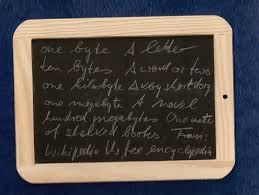 one byte A letter
ten bytes A word or two
one kilobyte A very short story
one megabyte A novel
hundred megabytes One metre
of shelved books From:
Wikipedia the free encyclopedia